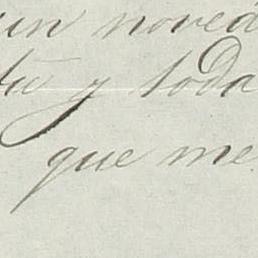 un noved
tu y toda
que me